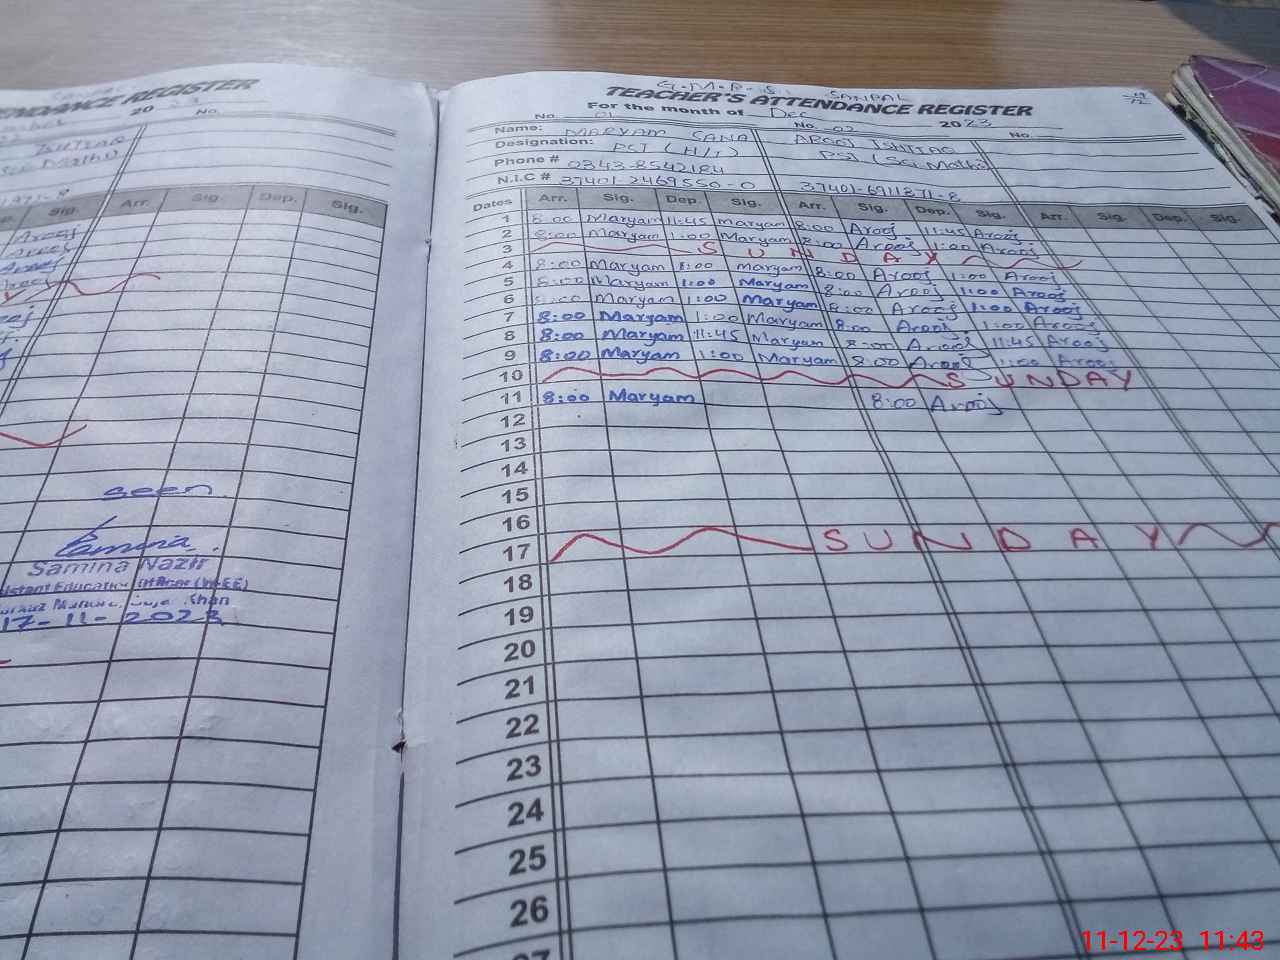 ENDANCE REGISTER
20
No.
Dep.
Sig.
Arr.
Sig.
Dep.
Sig.
Arooj
Arooj
Arooj
seen
Samina Nazir
17-11-2023
G.M.P.S. SANPAL
TEACHER'S ATTENDANCE REGISTER
For the month of Dec 2023
No. 01 No. 02 No.
Name: MARYAM SANA AROOJ ISHTIAQ
Designation: PST (H/T) PST (Sci Maths)
Phone # 0343-8542184
N.I.C # 37401-2469550-0 37401-6911871-8
Dates Arr. Sig. Dep. Sig. Arr. Sig. Dep. Sig. Arr. Sig. Dep. Sig.
1 8:00 Maryam 11:45 Maryam 8:00 Arooj 11:45 Arooj
2 8:00 Maryam 1:00 Maryam 8:00 Arooj 1:00 Arooj
3 SUNDAY
4 8:00 Maryam 1:00 Maryam 8:00 Arooj 1:00 Arooj
5 8:00 Maryam 1:00 Maryam 8:00 Arooj 1:00 Arooj
6 8:00 Maryam 1:00 Maryam 8:00 Arooj 1:00 Arooj
7 8:00 Maryam 1:00 Maryam 8:00 Arooj 1:00 Arooj
8 8:00 Maryam 11:45 Maryam 8:00 Arooj 11:45 Arooj
9 8:00 Maryam 1:00 Maryam 8:00 Arooj 1:00 Arooj
10 SUNDAY
11 8:00 Maryam 8:00 Arooj
12
13
14
15
16
17 SUNDAY
18
19
20
21
22
23
24
25
26
27
11-12-23 11:43